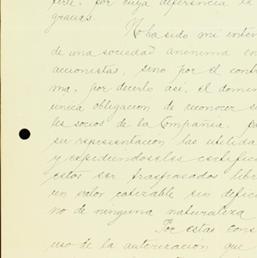 por cuya diferencia le
gracias.
No ha sido mi inten
de una sociedad anonima con
accionistas, sino por el contr
ma, por decirlo asi, el domin
unica obligacion de reconocer
les socios de la Compañia, pa
su representacion las utilida
y expidiendoseles certific
estos ser traspasados libr
un valor cotizable sin difi
no de ninguna naturaleza
Por estas cons
uso de la autorizacion que